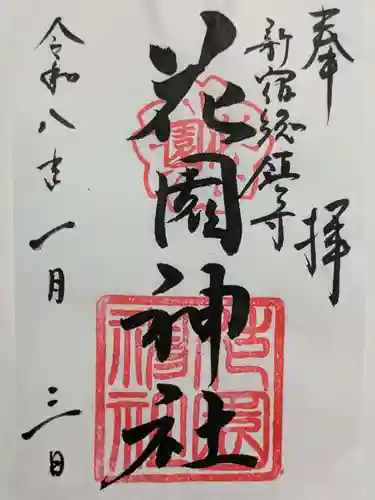 奉拝
新宿総鎮守
花園神社
令和八年一月三日
花園神社